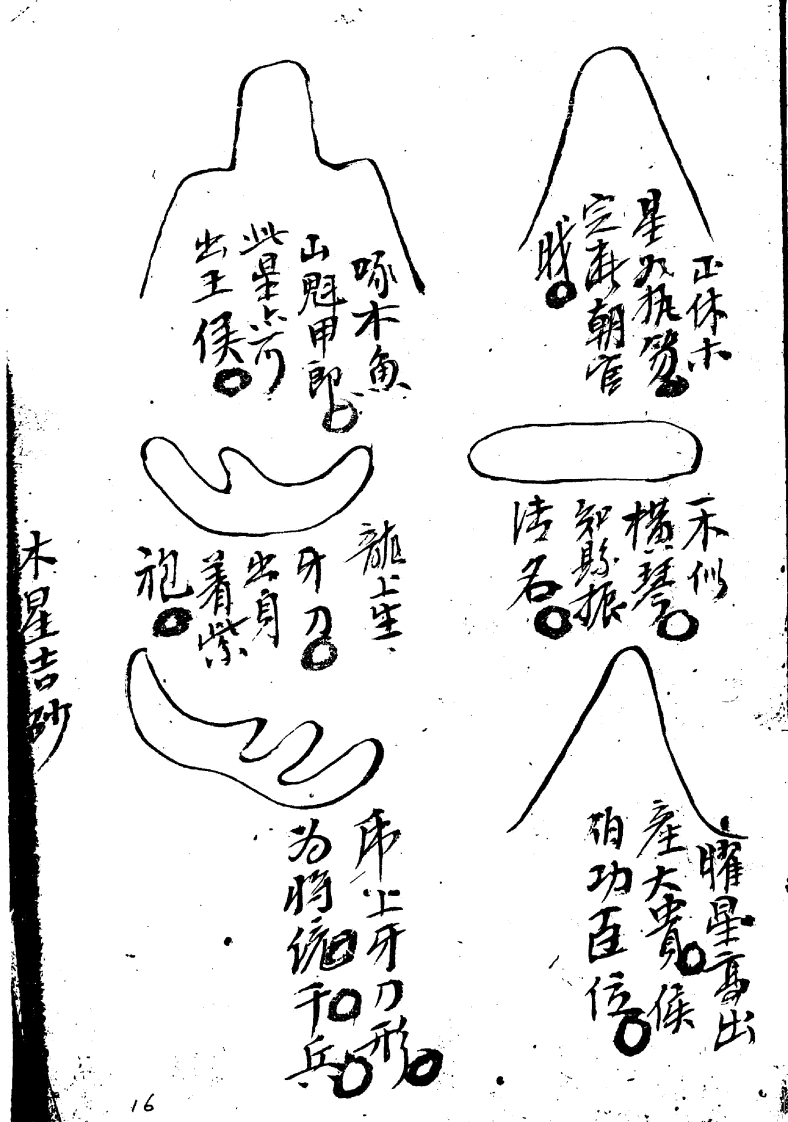 正体木
星如执笏
定出朝官
職
一木似
橫琴
知縣振
清名
曜星高出
產大貴侯
伯功臣位
啄木魚
山魁甲郎
此星
出王侯
龍上生
牙刀
出身
着紫
袍
虎上牙刀形
为将統千兵
木星吉砂
16